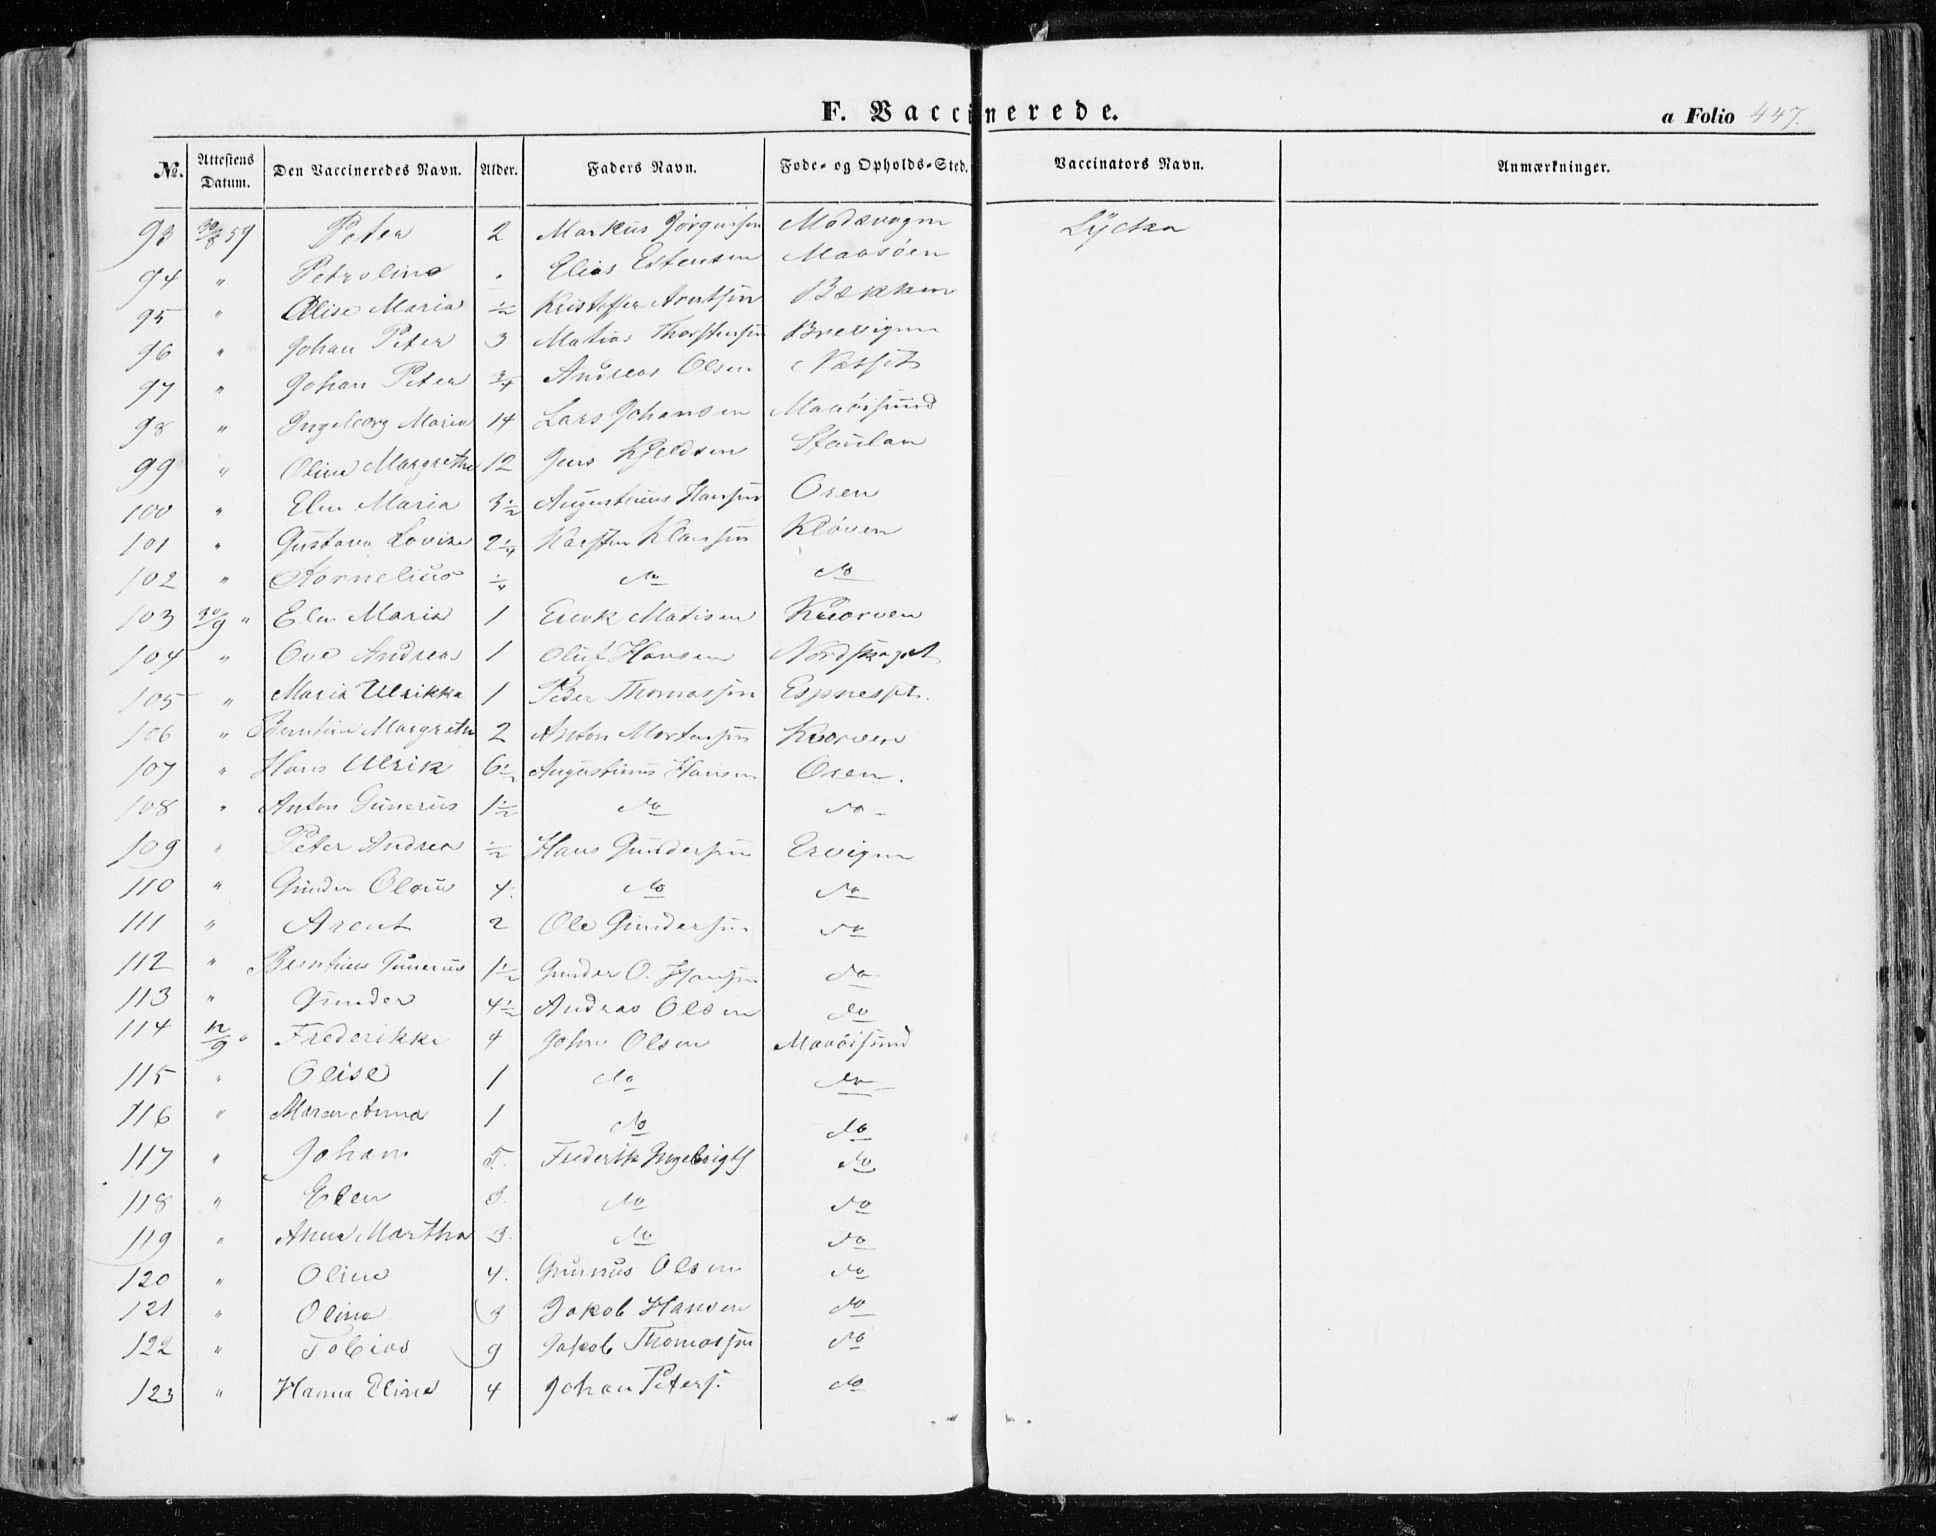 F. Vaccinerede.
a Folio 447.
No. Attestens Datum. Den Vaccineredes Navn. Alder. Faders Navn. Føde- og Opholds-Sted. Vaccinators Navn. Anmærkninger.
93 30/8 59 Peter 2 Markus Jörgensen Lycka
94 " Petroline " Elias Estensen Maasöen
95 " Olise Maria 1/2 Kristoffer Arentsen Bækken
96 " Johan Peter 3 Matias Thorstensen Brevigen
97 " Johan Peter 3/4 Andreas Olsen Næsset
98 " Ingeborg Maria 14 Lars Johansen Maaöisund
99 " Oline Margrethe 12 Jens Kjeldsen Staulan
100 " Elen Maria 3 1/2 Augustinus Hansen Osen
101 " Gustava Lovise 2 1/4 Karsten Klausen Klöven
102 " Kornelius 1/4 do do
103 30/9 " Elen Maria 1 Matisen Kuorven
104 " Ove Andreas 1 Oluf Hansen Nordskaget
105 " Maria Ulrikka 1 Peder Thomassen Espneset.
106 " Berntine Margrete 2 Anton Mortensen Kuorven
107 " Hans Ulrik 6 1/2 Augustinus Hansen Osen.
108 " Anton Gunerius 1 1/2 do do
109 " Peter Andrea 1/2 Hans Gundersen Ervigen
110 " Gunder Olaus 4. do do
111 " Arent 2 Ole Gundersen do
112 " Berntinus Gunerius 1 1/2 Gunder O. Hansen do
113 " Gunder 4 1/2 Andras Olsen do
114 12/9 " Frederikke 4 John Olsen Maaöisund
115 " Olise 1 do do
116 " Maren Anna 1 do do
117 " Johan 5. Frederik Ingebrigts do
118 " Elen 3. do do
119 " Anna Martha 3. do do
120 " Oline 4. Olsen do
121 " Oline 3 Jakob Hansen do
122 " Tobias 9 Jakob Thomassen do
123 " Hanna Eline 4 Johan Peters. do